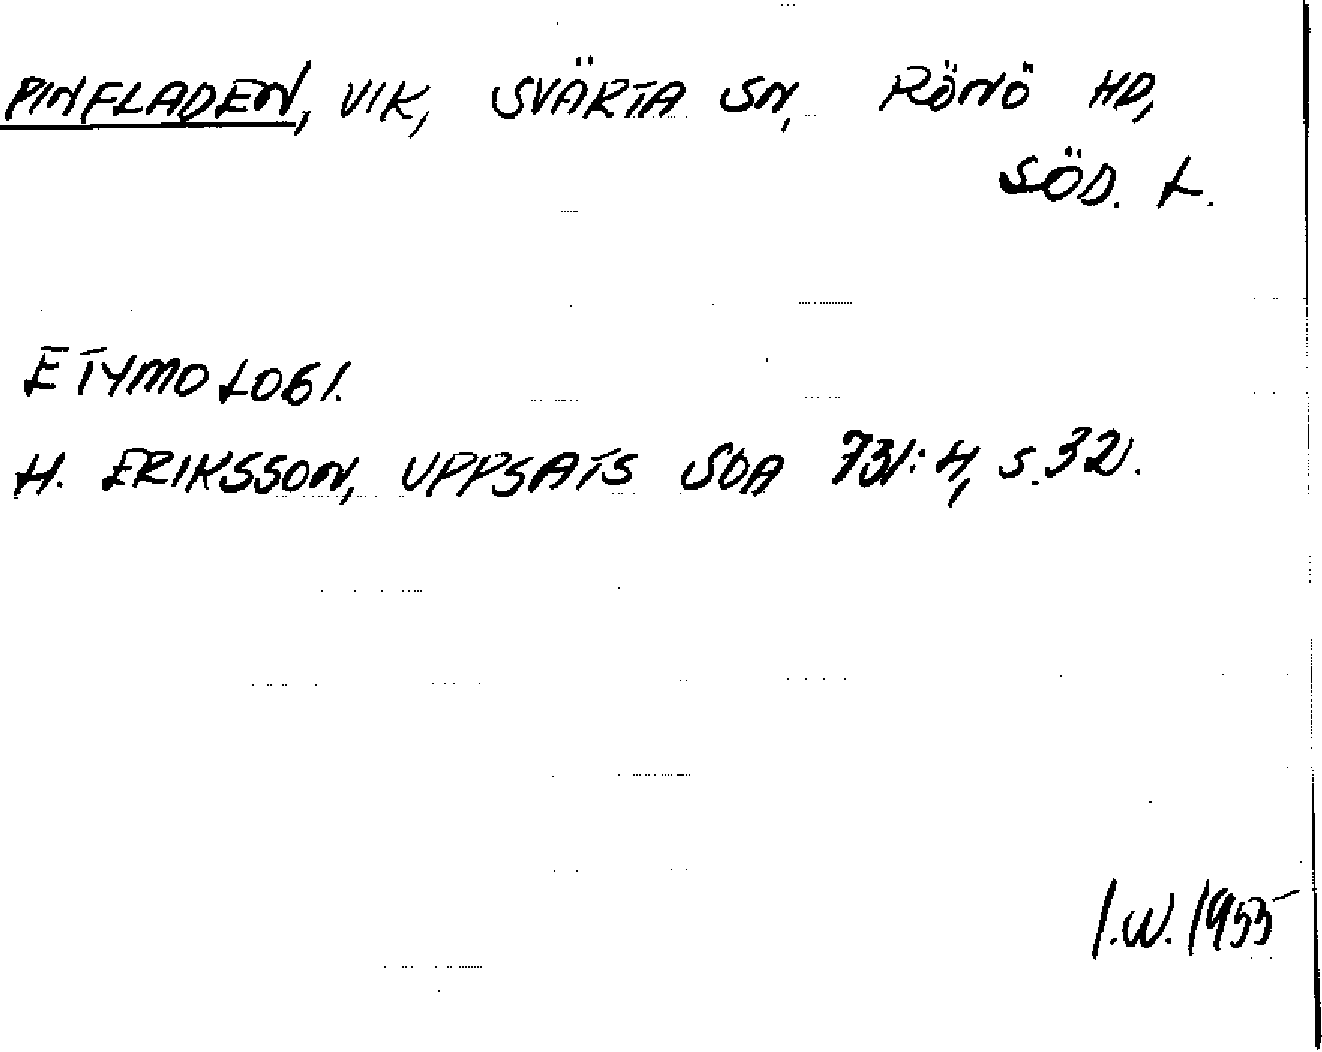 PINFLADEN, VIK, SVÄRTA SN, RÖNÖ HD,
SÖD. L.
ETYMOLOGI.
H. ERIKSSON, UPPSATS SOA 731:4, s. 32.
I.W. 1955